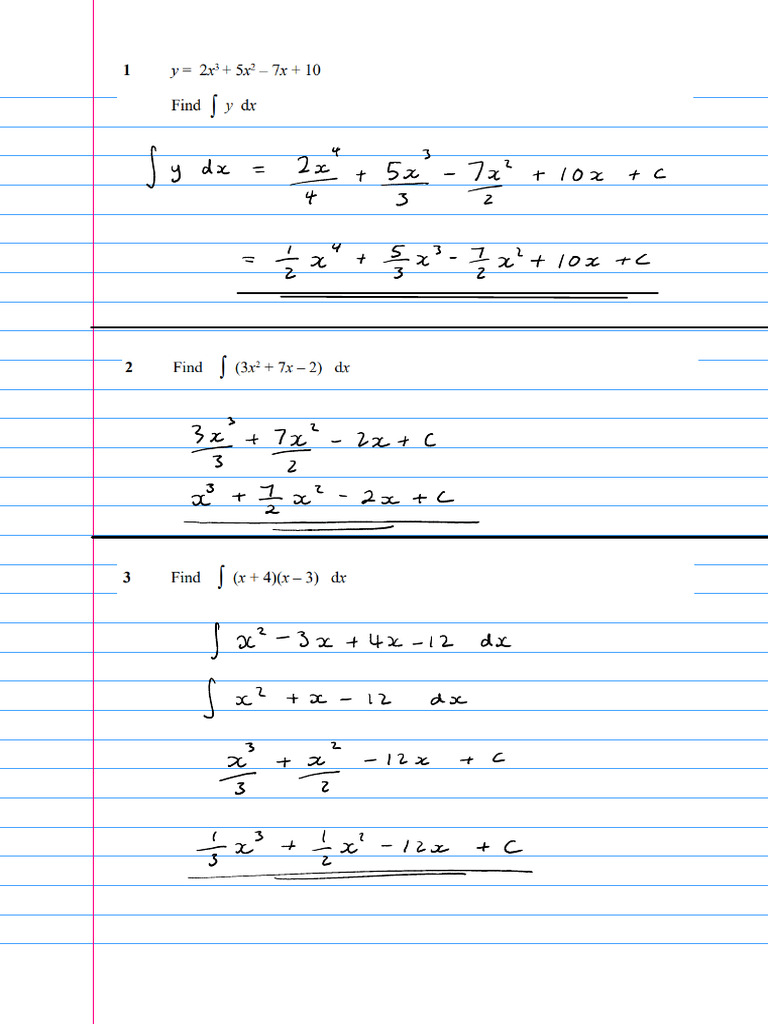 1 y = 2x³ + 5x² – 7x + 10
Find ∫ y dx
∫ y dx = 2x⁴/4 + 5x³/3 - 7x²/2 + 10x + C
= 1/2 x⁴ + 5/3 x³ - 7/2 x² + 10x + C
2 Find ∫ (3x² + 7x – 2) dx
3x³/3 + 7x²/2 - 2x + C
x³ + 7/2 x² - 2x + C
3 Find ∫ (x + 4)(x – 3) dx
∫ x² - 3x + 4x - 12 dx
∫ x² + x - 12 dx
x³/3 + x²/2 - 12x + C
1/3 x³ + 1/2 x² - 12x + C